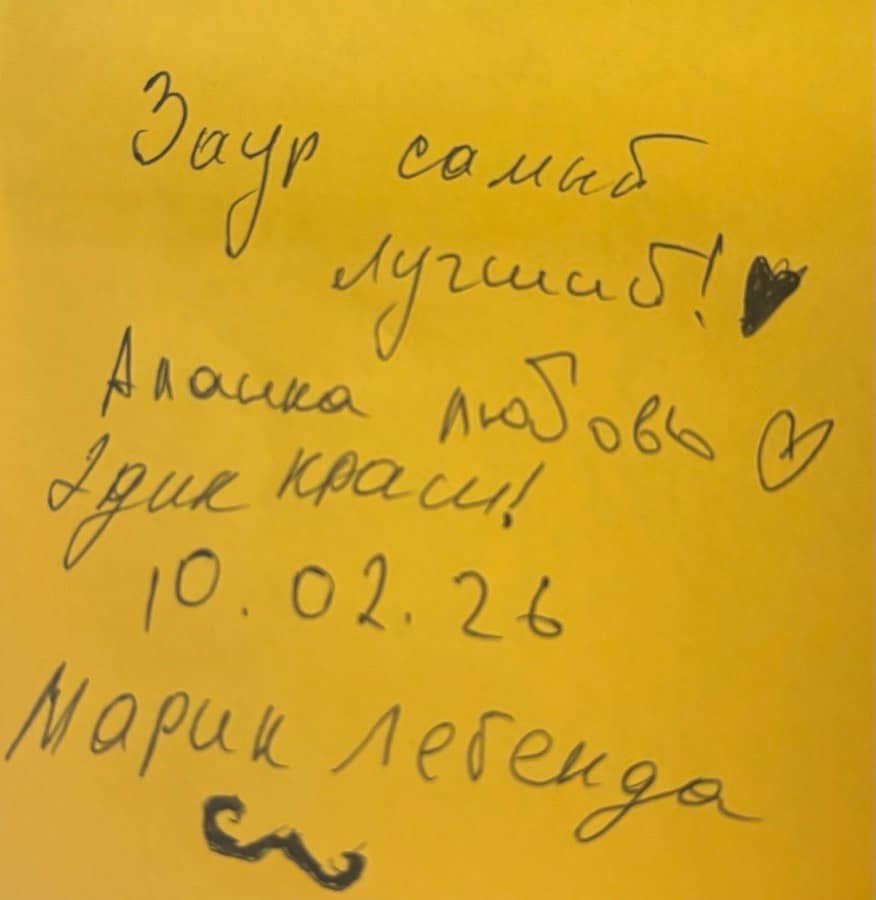 Заур самый
лучший!
Аланка любовь
Эдик краш!
10.02.26
Марик легенда